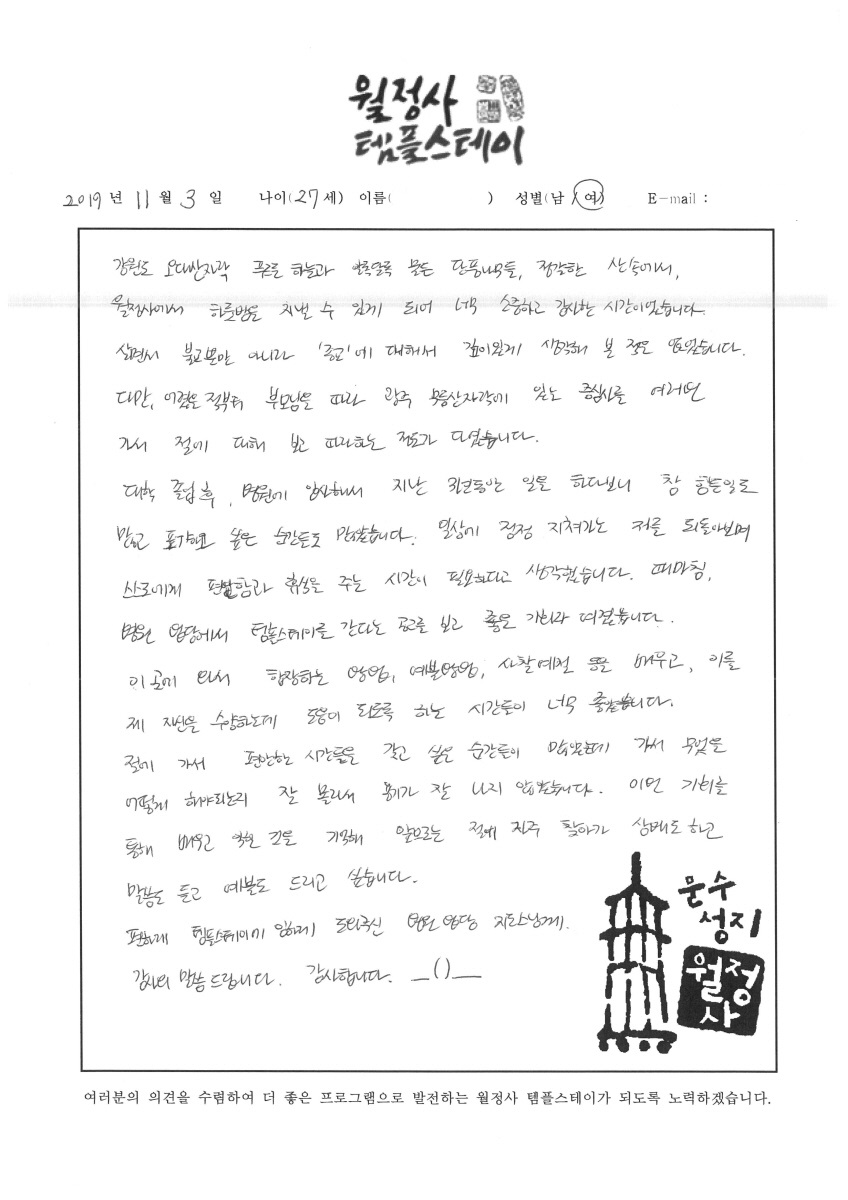 월정사
템플스테이
2019 년 11 월 3 일 나이(27세) 이름( ) 성별(남 / 여) E-mail :
강원도 오대산자락 푸른 하늘과 알록달록 물든 단풍나무들, 정갈한 산속에서,
월정사에서 하룻밤을 지낼 수 있게 되어 너무 소중하고 감사한 시간이었습니다.
살면서 불교뿐만 아니라 '종교'에 대해서 깊이있게 생각해 본 적은 없었습니다.
다만, 어렸을 적부터 부모님을 따라 광주 무등산자락에 있는 증심사를 여러번
가서 절에 대해 보고 따라하는 정도가 다였습니다.
대학 졸업 후, 병원에 입사해서 지난 일을 하다보니 참 힘든일도
많고 포기하고 싶은 순간들도 많았습니다. 일상에 점점 지쳐가는 저를 되돌아보며
스스로에게 편안함과 휴식을 주는 시간이 필요하다고 생각했습니다. 때마침,
병원 법당에서 템플스테이를 간다는 공고를 보고 좋은 기회라 여겼습니다.
이 곳에 와서 합장하는 방법, 예불방법, 사찰예절 등을 배우고, 이를
제 자신을 수양하는데 도움이 되도록 하는 시간들이 너무 좋았습니다.
절에 가서 편안한 시간들을 갖고 싶은 순간들이 많았는데 가서 무엇을
어떻게 해야되는지 잘 몰라서 용기가 잘 나지 않았습니다. 이번 기회를
통해 배우고 익힌 것을 기억해 앞으로는 절에 자주 찾아가 삼배도 하고
말씀도 듣고 예불도 드리고 싶습니다.
편하게 템플스테이에 임하게 도와주신 병원 법당 지도스님께.
감사의 말씀 드립니다. 감사합니다. _( )_
문수
성지
월정
사
여러분의 의견을 수렴하여 더 좋은 프로그램으로 발전하는 월정사 템플스테이가 되도록 노력하겠습니다.